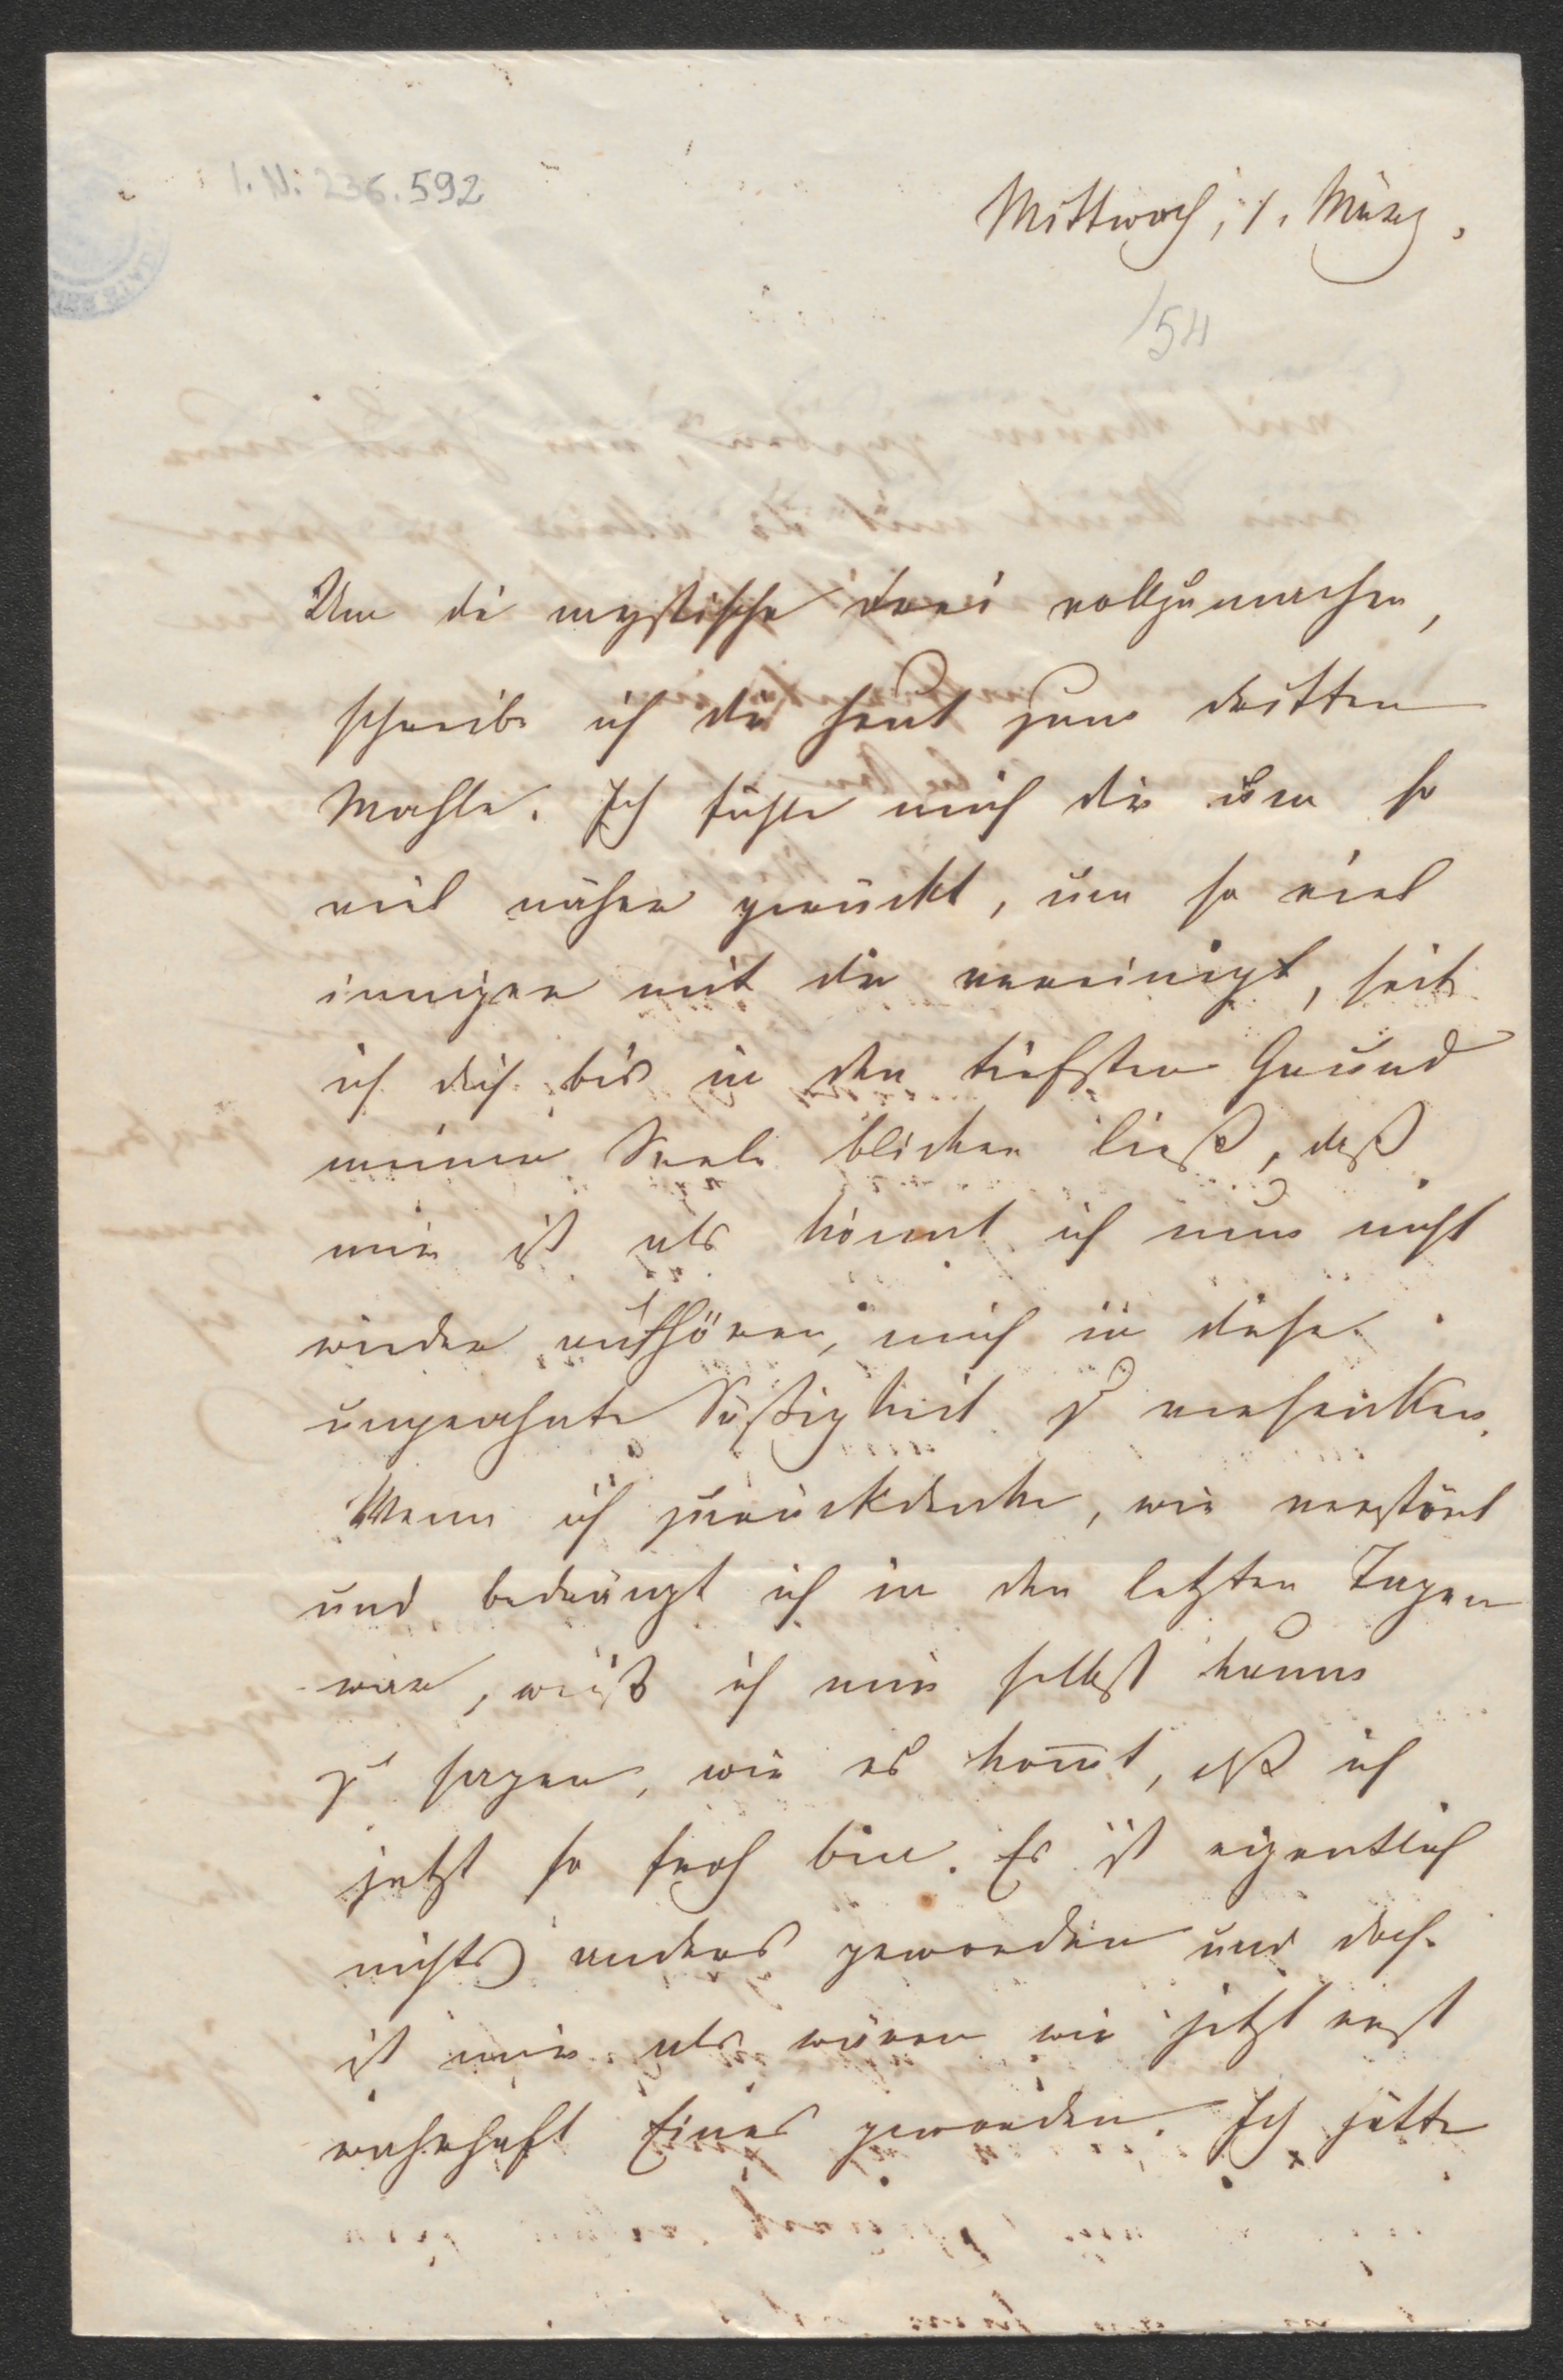 I. N. 236.592
Mittwoch, 1. März.
/54
Um die mystische drei vollzumachen,
schreibe ich dir heut zum dritten
Mahle. Ich fühle mich dir um so
viel näher gerückt, um so viel
inniger mit dir vereinigt, seit
ich dich bis in den tiefsten Grund
meiner Seele blicken ließ, daß
mir ist als könnt ich nun nicht
wieder aufhören, mich in diese
ungeahnte Süßigkeit zu versenken.
Wenn ich zurückdenke, wie verstört
und bedrängt ich in den letzten Tagen
war, weiß ich mir selbst kaum
zu sagen, wie es kom̅t, daß ich
jetzt so froh bin. Es ist eigentlich
nichts anders geworden und doch
ist mir als wären wir jetzt erst
wahrhaft Eines geworden. Ich hätte